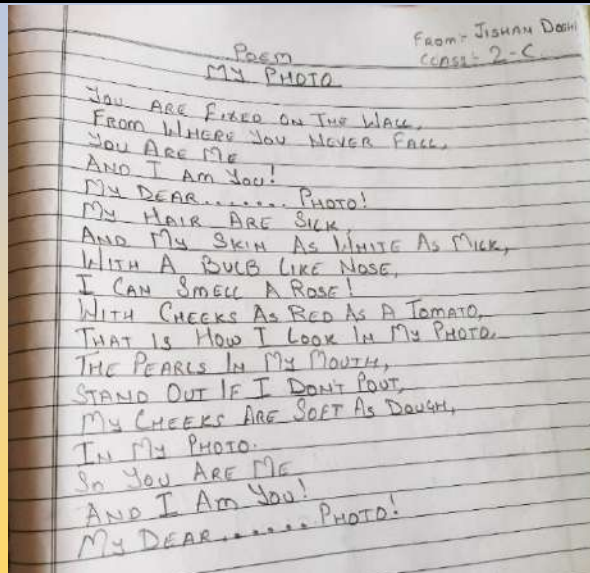 From:- JISHAN DOSHI
CLASS:- 2-C
POEM
MY PHOTO
YOU ARE FIXED ON THE WALL,
FROM WHERE YOU NEVER FALL,
YOU ARE ME
AND I AM YOU!
MY DEAR....... PHOTO!
MY HAIR ARE SILK,
AND MY SKIN AS WHITE AS MILK,
WITH A BULB LIKE NOSE,
I CAN SMELL A ROSE!
WITH CHEEKS AS RED AS A TOMATO,
THAT IS HOW I LOOK IN MY PHOTO.
THE PEARLS IN MY MOUTH,
STAND OUT IF I DON'T POUT,
MY CHEEKS ARE SOFT AS DOUGH,
IN MY PHOTO.
SO YOU ARE ME
AND I AM YOU!
MY DEAR....... PHOTO!